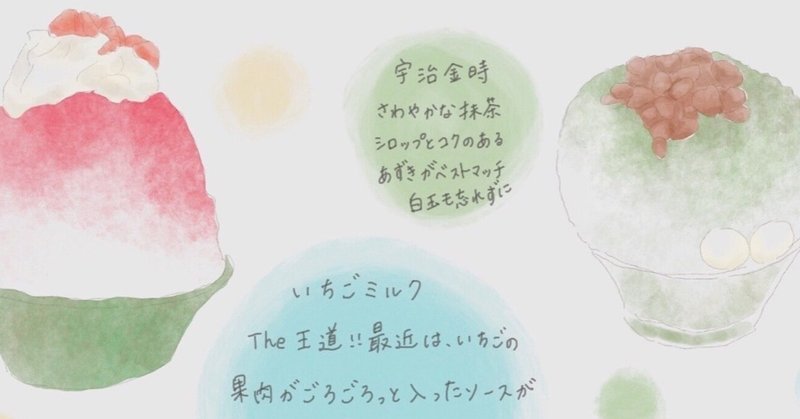 宇治金時
さわやかな抹茶
シロップとコクのある
あずきがベストマッチ
白玉も忘れずに
いちごミルク
The 王道!!最近は、いちごの
果肉がごろごろっと入ったソースが